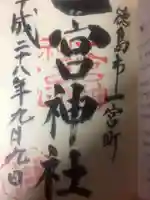 徳島市一宮町
一宮神社
平成二十八年九月九日